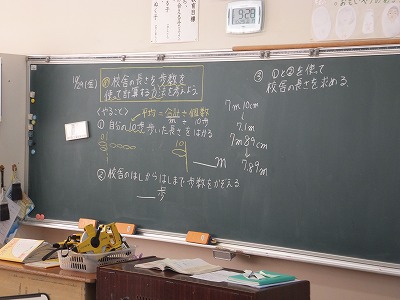 10/29(金)
め 校舎の長さを歩数を
使って計算する方法を考えよう。
〈やること〉
平均=合計÷個数
m ÷ 10歩
① 自分の10歩歩いた長さをはかる
0 10
m
② 校舎のはしからはしまで歩数をかぞえる
歩
③ ①と②を使って
校舎の長さを求める。
7m10cm
↓
7.1m
7m89cm
↓
7.89m